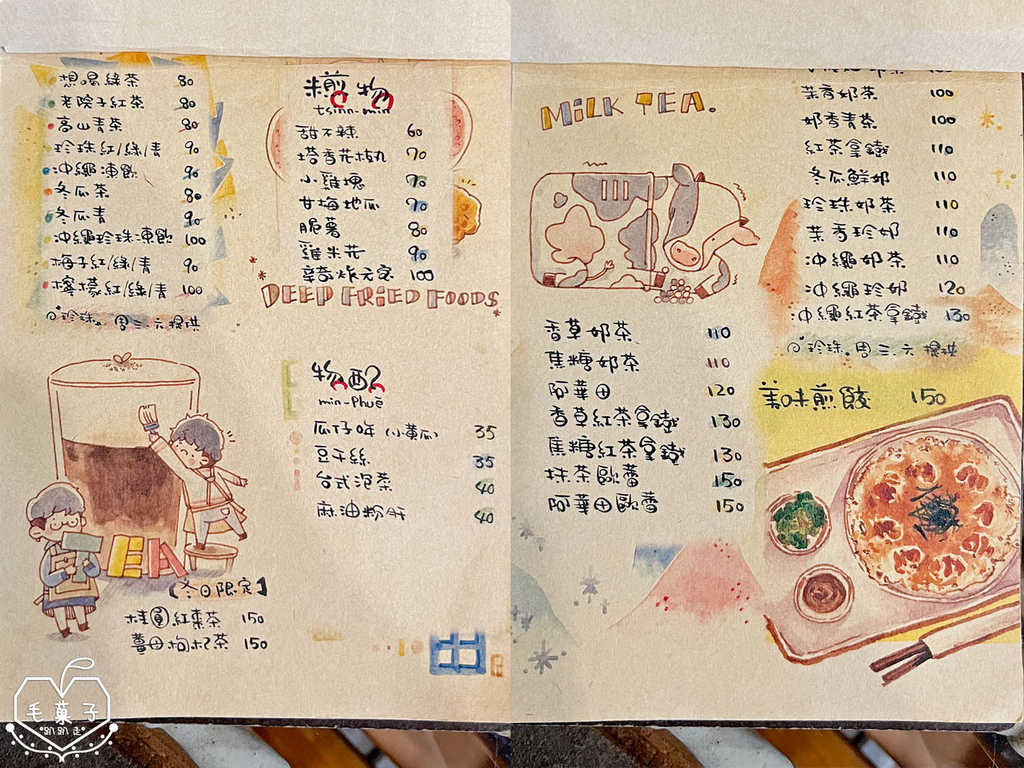 想喝綠茶 80
老院子紅茶 80
高山青茶 80
珍珠紅/綠/青 90
沖繩凍飲 90
冬瓜茶 80
冬瓜青 90
沖繩珍珠凍飲 100
梅子紅/綠/青 90
檸檬紅/綠/青 100
珍珠。周三.六提供
TEA
【冬日限定】
桂圓紅棗茶 150
薑母枸杞茶 150
煎物
tsinn-min
甜不辣 60
塔香花枝丸 70
小雞塊 70
甘梅地瓜 70
脆薯 80
雞米花 90
辛奇炸元宝 100
DEEP FRIED FOODS
物配
min-phuè
瓜仔哖(小黃瓜) 35
豆干絲 35
台式泡菜 40
麻油粉肝 40
毛菓子
趴趴走
MILK TEA.
香草奶茶 110
焦糖奶茶 110
阿華田 120
香草紅茶拿鐵 130
焦糖紅茶拿鐵 130
抹茶歐蕾 150
阿華田歐蕾 150
茉香奶茶 100
奶香青茶 100
紅茶拿鐵 110
冬瓜鮮奶 110
珍珠奶茶 110
茉香珍奶 110
沖繩奶茶 110
沖繩珍奶 120
沖繩紅茶拿鐵 130
珍珠。周三.六提供
美味煎餃 150